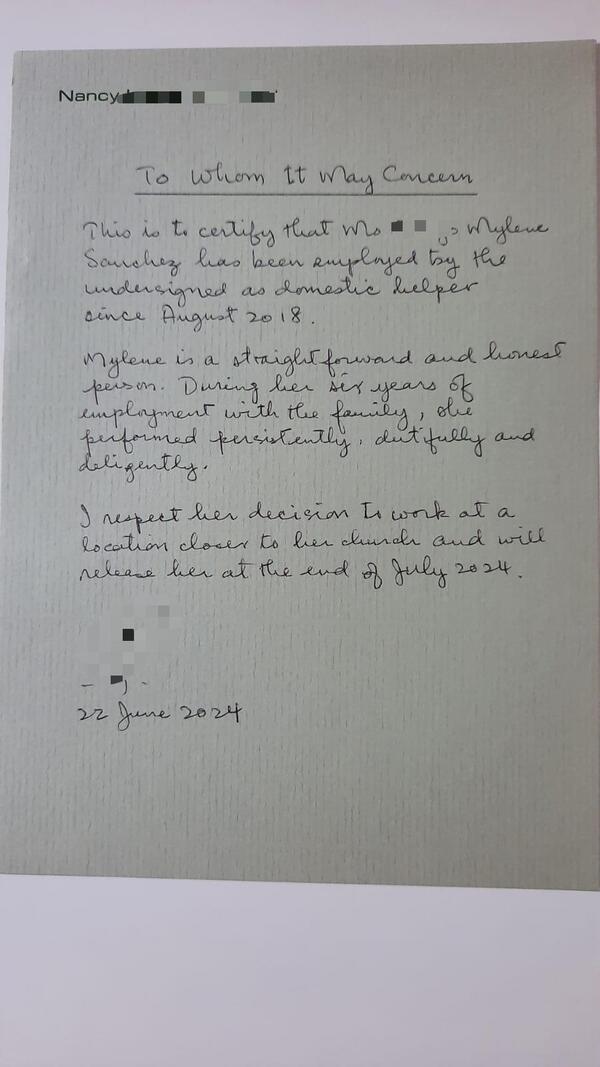 Nancy
To Whom It May Concern
This is to certify that Ms Mylene
Sanchez has been employed by the
undersigned as domestic helper
since August 2018.
Mylene is a straightforward and honest
person. During her six years of
employment with the family, she
performed persistently, dutifully and
deligently.
I respect her decision to work at a
location closer to her church and will
release her at the end of July 2024.
22 June 2024